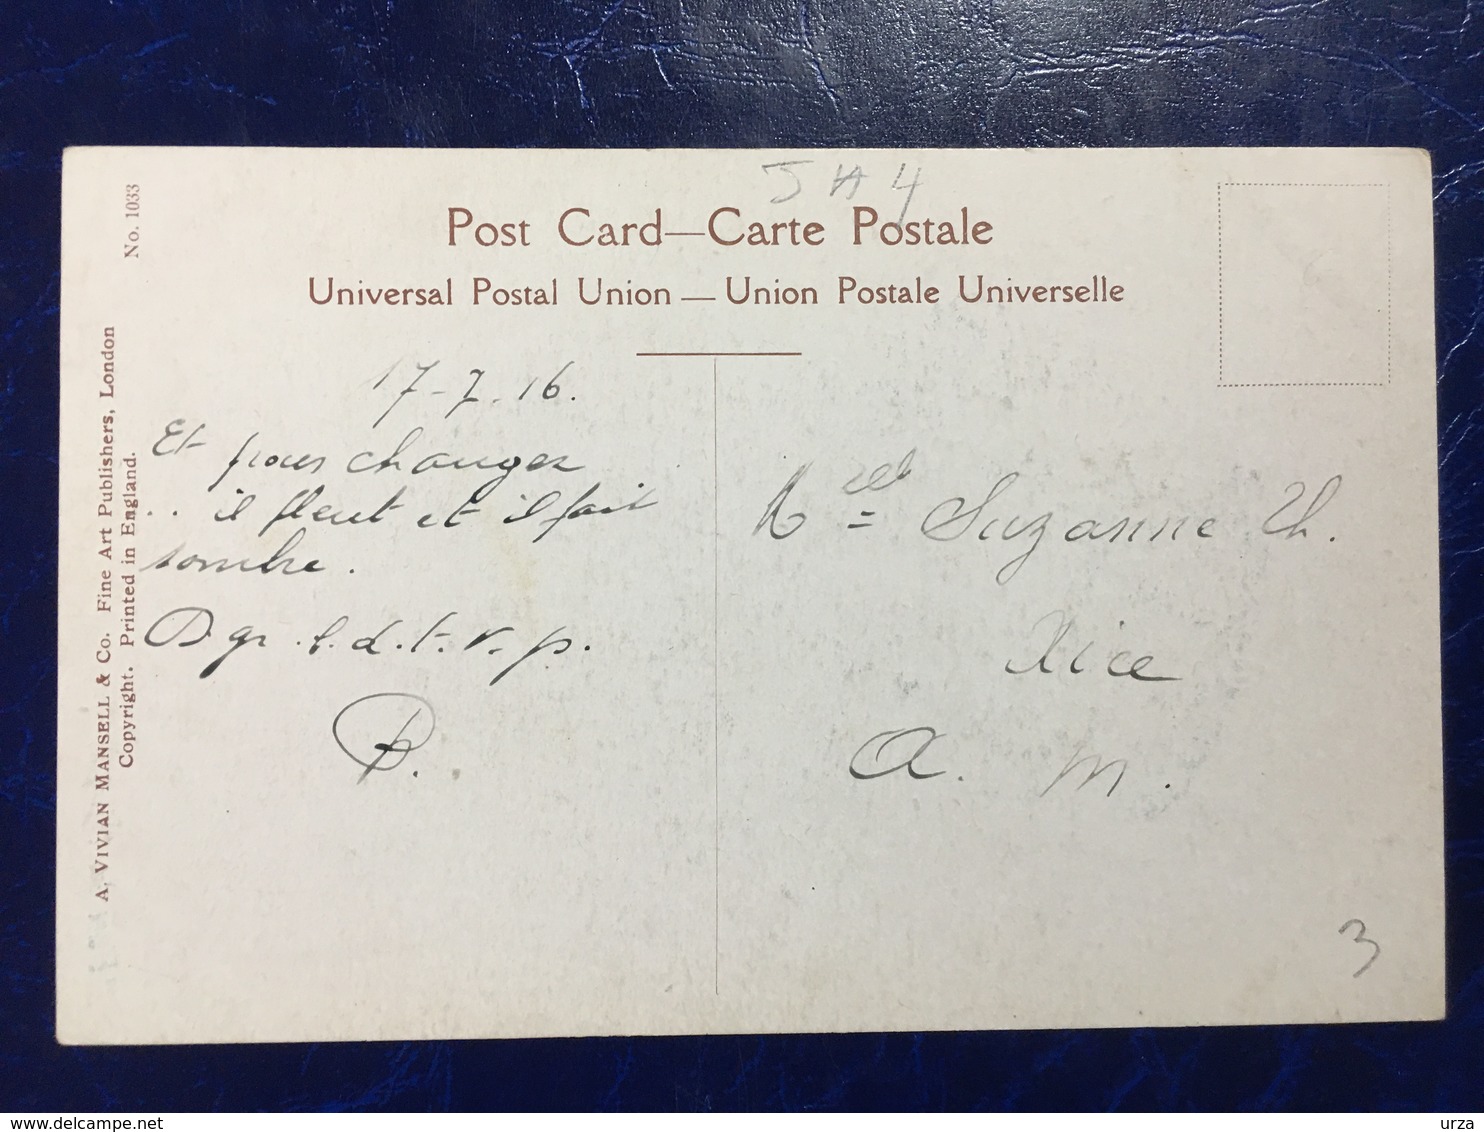 No. 1033
Post Card—Carte Postale
Universal Postal Union — Union Postale Universelle
A. VIVIAN MANSELL & Co. Fine Art Publishers, London
Copyright. Printed in England.
17-7-16.
Et pour changer
.. il pleut et il fait
sombre.
Melle Suzanne Th.
Nice
A. M.
3
delcampe.net
urza